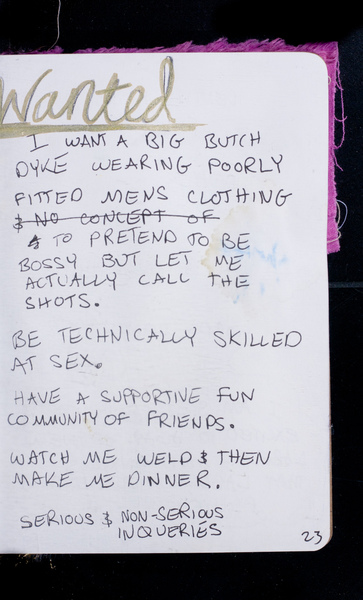 Wanted
I WANT A BIG BUTCH
DYKE WEARING POORLY
FITTED MENS CLOTHING
& NO CONCEPT OF
& TO PRETEND TO BE
BOSSY BUT LET ME
ACTUALLY CALL THE
SHOTS.
BE TECHNICALLY SKILLED
AT SEX.
HAVE A SUPPORTIVE FUN
COMMUNITY OF FRIENDS.
WATCH ME WELD & THEN
MAKE ME DINNER.
SERIOUS & NON-SERIOUS
INQUERIES
23